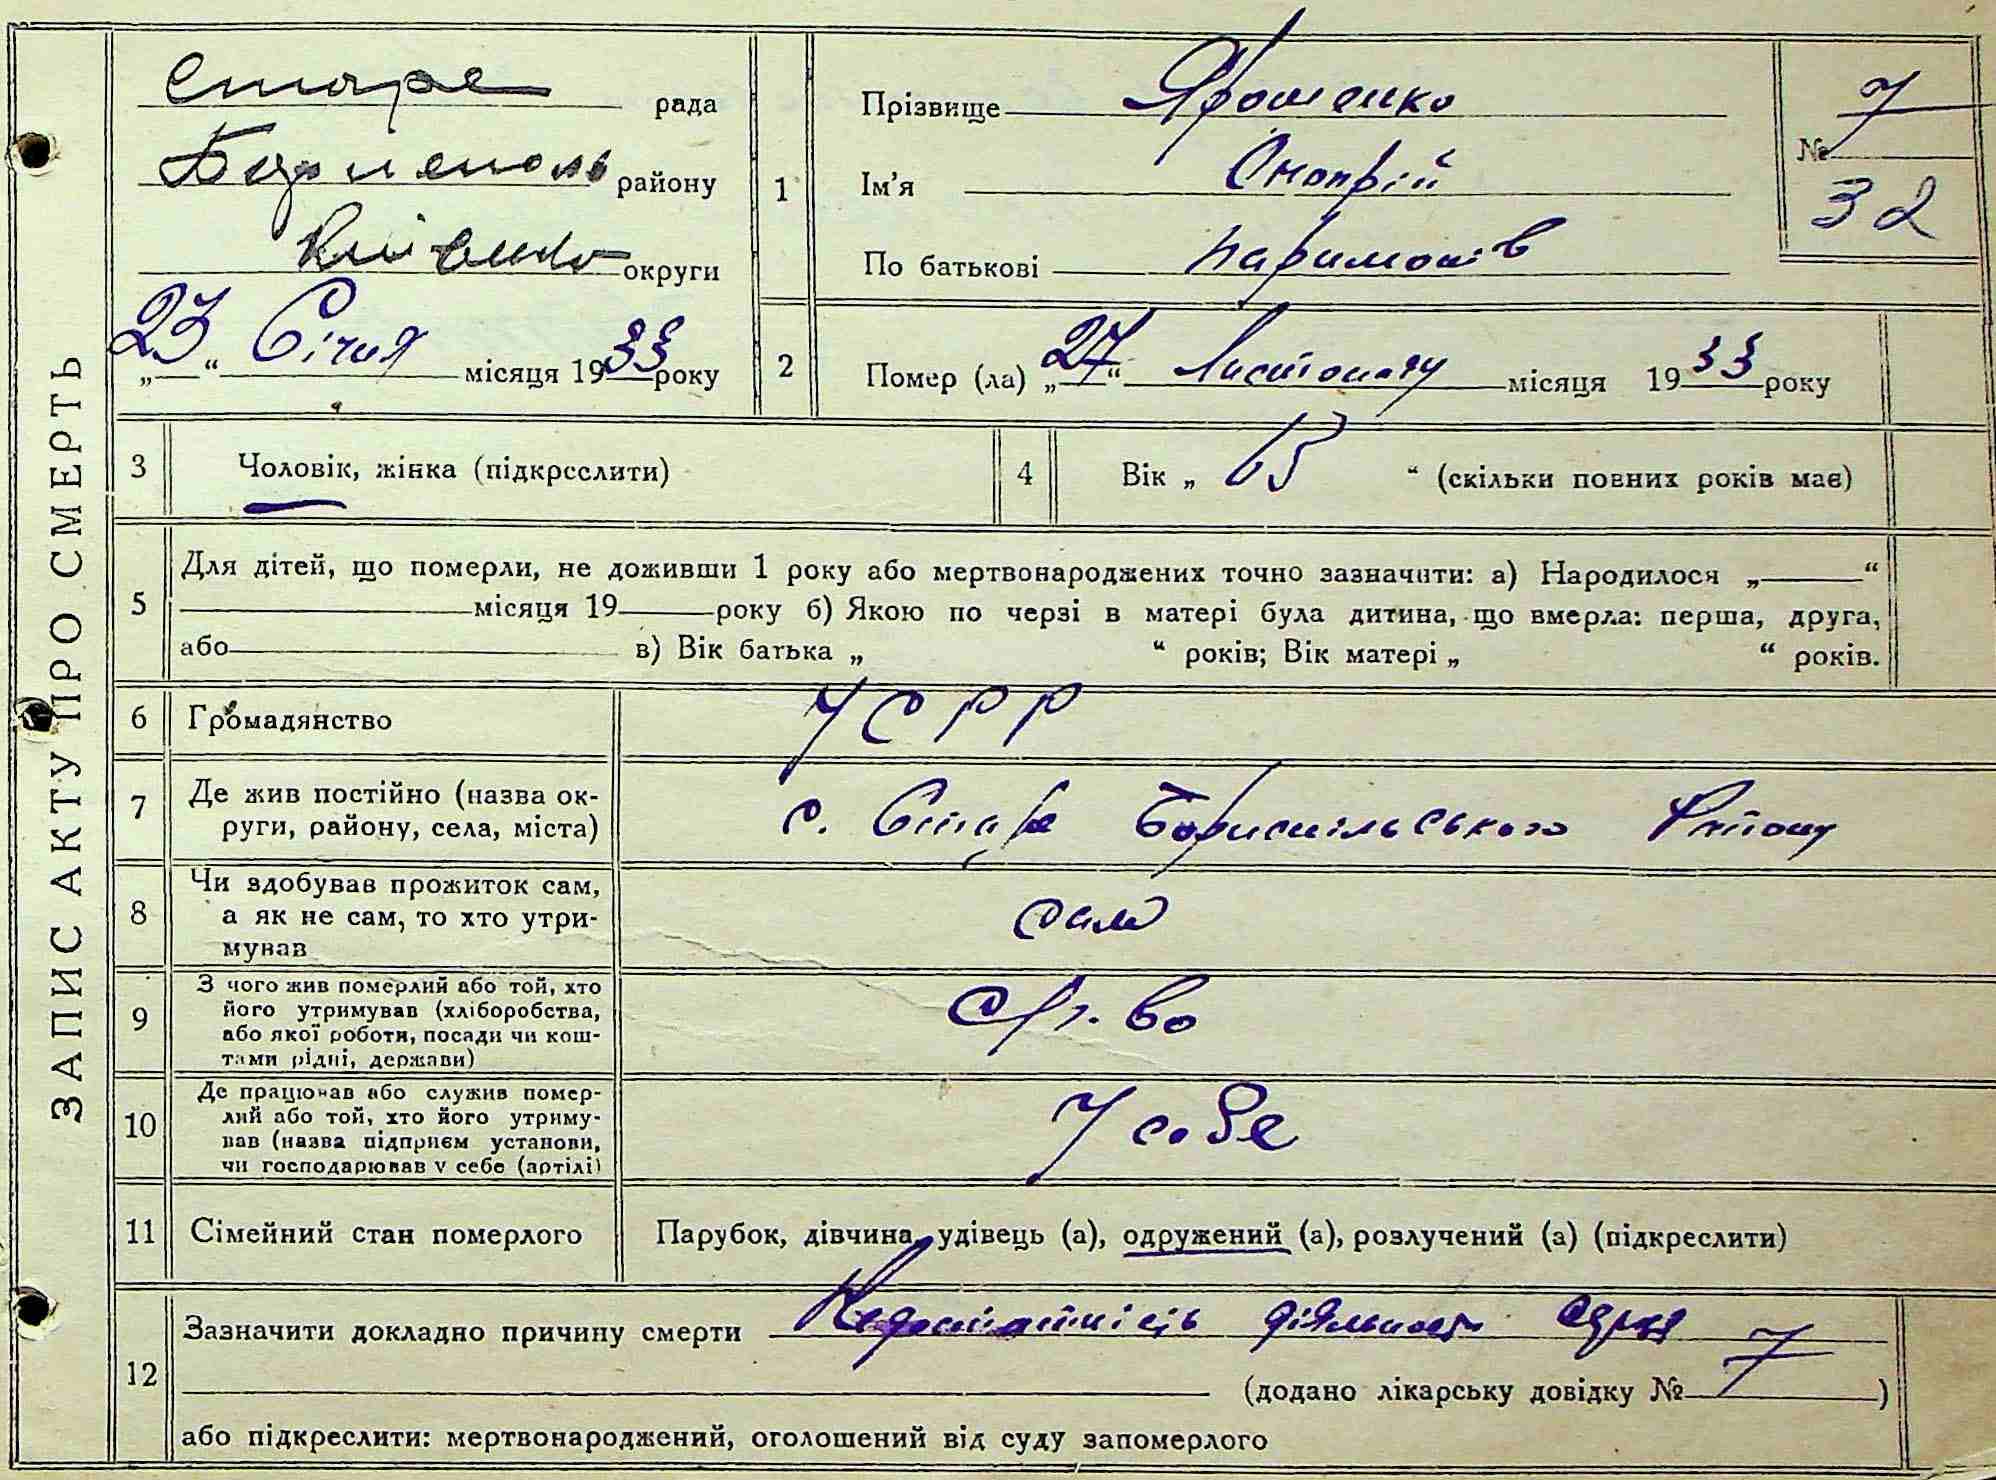 ЗАПИС АКТУ ПРО СМЕРТЬ
Старе рада
Борисполь району
Київсько округи
„23“ Січня місяця 1933 року
1
Прізвище Ярошенко
Ім'я Онопрій
По батькові Паримонів
№ 7
32
2
Помер (ла) „27“ Листопаду місяця 1933 року
3
Чоловік, жінка (підкреслити)
4
Вік „ 65 “ (скільки повних років має)
5
Для дітей, що померли, не доживши 1 року або мертвонароджених точно зазначити: а) Народилося „ “
місяця 19 року б) Якою по черзі в матері була дитина, що вмерла: перша, друга,
або в) Вік батька „ “ років; Вік матері „ “ років.
6
Громадянство
УСРР
7
Де жив постійно (назва ок-
руги, району, села, міста)
с. Старе Бориспільського Району
8
Чи здобував прожиток сам,
а як не сам, то хто утри-
мував
сам
9
З чого жив померлий або той, хто
його утримував (хліборобства,
або якої роботи, посади чи кош-
тами рідні, держави)
10
Де працював або служив помер-
лий або той, хто його утриму-
вав (назва підприєм установи,
чи господарював у себе (артілі)
У себе
11
Сімейний стан померлого
Парубок, дівчина, удівець (а), одружений (а), розлучений (а) (підкреслити)
12
Зазначити докладно причину смерти Недостатність діяльності серця
(додано лікарську довідку № 7 )
або підкреслити: мертвонароджений, оголошений від суду запомерлого